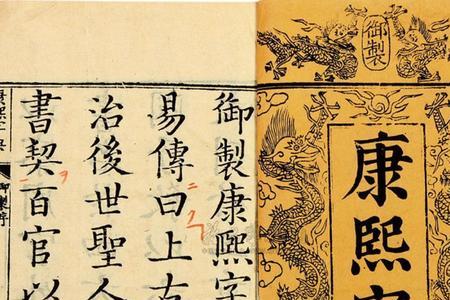 御製
康熙字
御製康熙字
易傳曰上古
治後世聖人
書契百官以